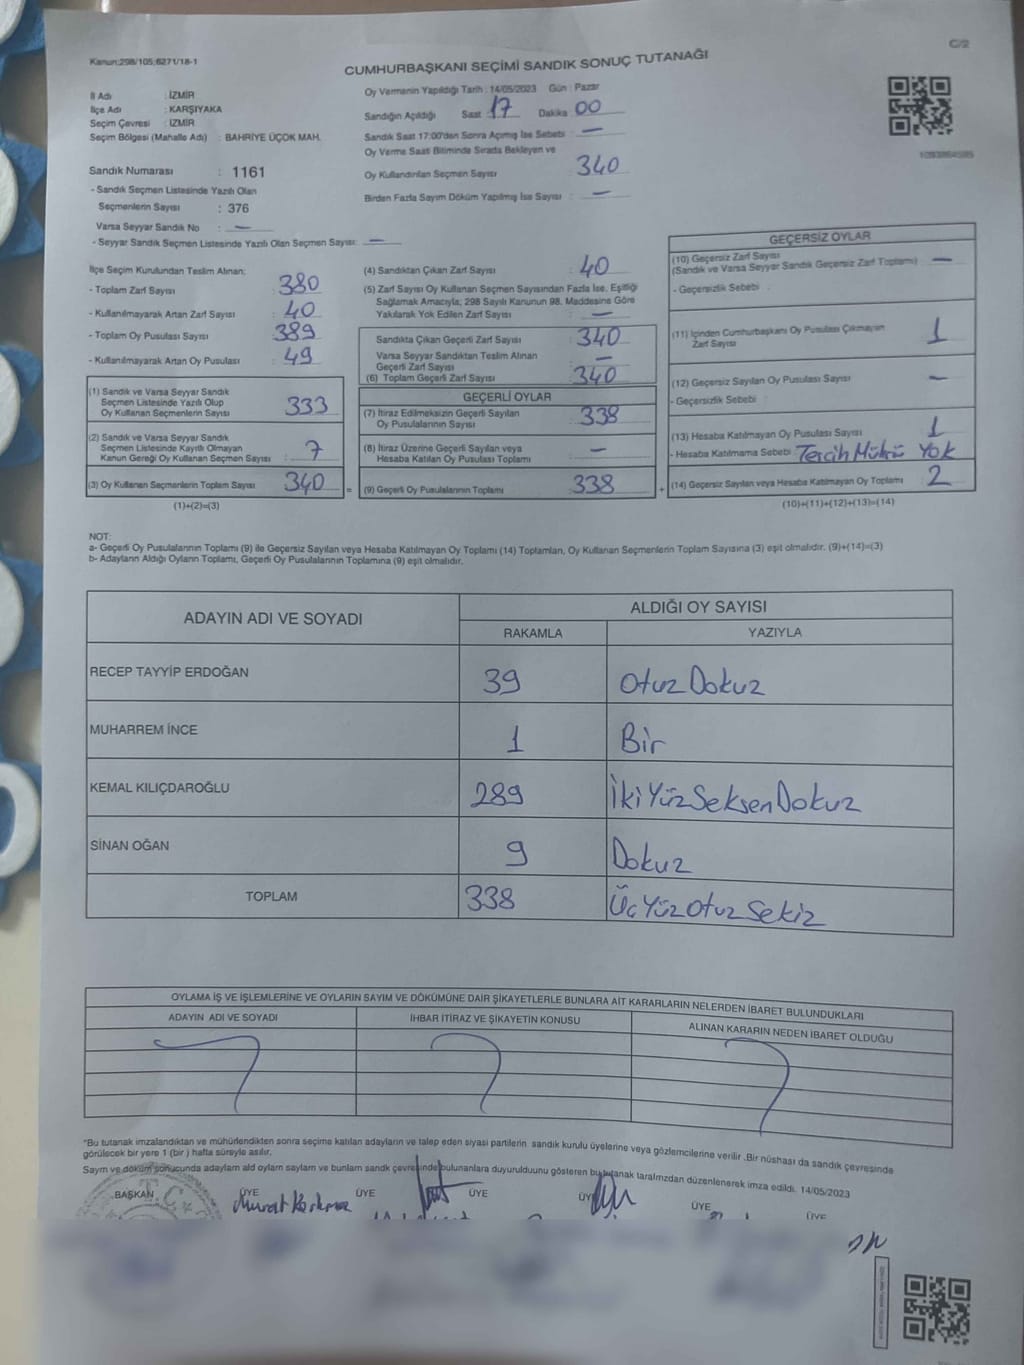 Kanun:298/105;6271/18-1
C/2
CUMHURBAŞKANI SEÇİMİ SANDIK SONUÇ TUTANAĞI
İl Adı : İZMİR
İlçe Adı : KARŞIYAKA
Seçim Çevresi : İZMİR
Seçim Bölgesi (Mahalle Adı) : BAHRİYE ÜÇOK MAH.
Sandık Numarası : 1161
- Sandık Seçmen Listesinde Yazılı Olan
Seçmenlerin Sayısı : 376
Varsa Seyyar Sandık No : —
- Seyyar Sandık Seçmen Listesinde Yazılı Olan Seçmen Sayısı: —
Oy Vermenin Yapıldığı Tarih : 14/05/2023 Gün : Pazar
Sandığın Açıldığı Saat : 17 Dakika : 00
Sandık Saat 17:00'den Sonra Açımış İse Sebebi : —
Oy Verme Saati Bitiminde Sırada Bekleyen ve
Oy Kullandırılan Seçmen Sayısı : 340
Birden Fazla Sayım Döküm Yapılmış İse Sayısı : —
İlçe Seçim Kurulundan Teslim Alınan:
- Toplam Zarf Sayısı : 380
- Kullanılmayarak Artan Zarf Sayısı : 40
- Toplam Oy Pusulası Sayısı : 389
- Kullanılmayarak Artan Oy Pusulası : 49
(1) Sandık ve Varsa Seyyar Sandık
Seçmen Listesinde Yazılı Olup
Oy Kullanan Seçmenlerin Sayısı : 333
(2) Sandık ve Varsa Seyyar Sandık
Seçmen Listesinde Kayıtlı Olmayan
Kanun Gereği Oy Kullanan Seçmen Sayısı : 7
(3) Oy Kullanan Seçmenlerin Toplam Sayısı : 340 =
(1)+(2)=(3)
(4) Sandıktan Çıkan Zarf Sayısı : 40
(5) Zarf Sayısı Oy Kullanan Seçmen Sayısından Fazla İse, Eşitliği
Sağlamak Amacıyla; 298 Sayılı Kanunun 98. Maddesine Göre
Yakılarak Yok Edilen Zarf Sayısı : —
Sandıkta Çıkan Geçerli Zarf Sayısı : 340
Varsa Seyyar Sandıktan Teslim Alınan
Geçerli Zarf Sayısı : —
(6) Toplam Geçerli Zarf Sayısı : 340
GEÇERLİ OYLAR
(7) İtiraz Edilmeksizin Geçerli Sayılan
Oy Pusulalarının Sayısı : 338
(8) İtiraz Üzerine Geçerli Sayılan veya
Hesaba Katılan Oy Pusulası Toplamı : —
(9) Geçerli Oy Pusulalarının Toplamı : 338 +
GEÇERSİZ OYLAR
(10) Geçersiz Zarf Sayısı
(Sandık ve Varsa Seyyar Sandık Geçersiz Zarf Toplamı) : —
- Geçersizlik Sebebi :
(11) İçinden Cumhurbaşkanı Oy Pusulası Çıkmayan
Zarf Sayısı : 1
(12) Geçersiz Sayılan Oy Pusulası Sayısı : —
- Geçersizlik Sebebi :
(13) Hesaba Katılmayan Oy Pusulası Sayısı : 1
- Hesaba Katılmama Sebebi : Tercih Mührü Yok
(14) Geçersiz Sayılan veya Hesaba Katılmayan Oy Toplamı : 2
(10)+(11)+(12)+(13)=(14)
NOT:
a- Geçerli Oy Pusulalarının Toplamı (9) ile Geçersiz Sayılan veya Hesaba Katılmayan Oy Toplamı (14) Toplamları, Oy Kullanan Seçmenlerin Toplam Sayısına (3) eşit olmalıdır. (9)+(14)=(3)
b- Adayların Aldığı Oyların Toplamı, Geçerli Oy Pusulalarının Toplamına (9) eşit olmalıdır.
ADAYIN ADI VE SOYADI
ALDIĞI OY SAYISI
RAKAMLA YAZIYLA
RECEP TAYYİP ERDOĞAN 39 Otuz Dokuz
MUHARREM İNCE 1 Bir
KEMAL KILIÇDAROĞLU 289 İki Yüz Seksen Dokuz
SİNAN OĞAN 9 Dokuz
TOPLAM 338 Üç Yüz Otuz Sekiz
OYLAMA İŞ VE İŞLEMLERİNE VE OYLARIN SAYIM VE DÖKÜMÜNE DAİR ŞİKAYETLERLE BUNLARA AİT KARARLARIN NELERDEN İBARET BULUNDUKLARI
ADAYIN ADI VE SOYADI İHBAR İTİRAZ VE ŞİKAYETİN KONUSU ALINAN KARARIN NEDEN İBARET OLDUĞU
*Bu tutanak imzalandıktan ve mühürlendikten sonra seçime katılan adayların ve talep eden siyasi partilerin sandık kurulu üyelerine veya gözlemcilerine verilir .Bir nüshası da sandık çevresinde
görülecek bir yere 1 (bir ) hafta süreyle asılır.
Sayım ve döküm sonucunda adayların ald oyların sayları ve bunların sandk çevresinde bulunanlara duyurulduunu gösteren bu tutanak taralmzdan düzenlenerek imza edildi. 14/05/2023
BAŞKAN ÜYE ÜYE ÜYE ÜYE ÜYE ÜYE
Murat
T.C.